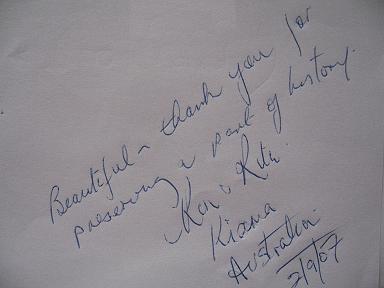 Beautiful - thank you for
preserving a part of history.
Kiama
Australia.
2/9/07